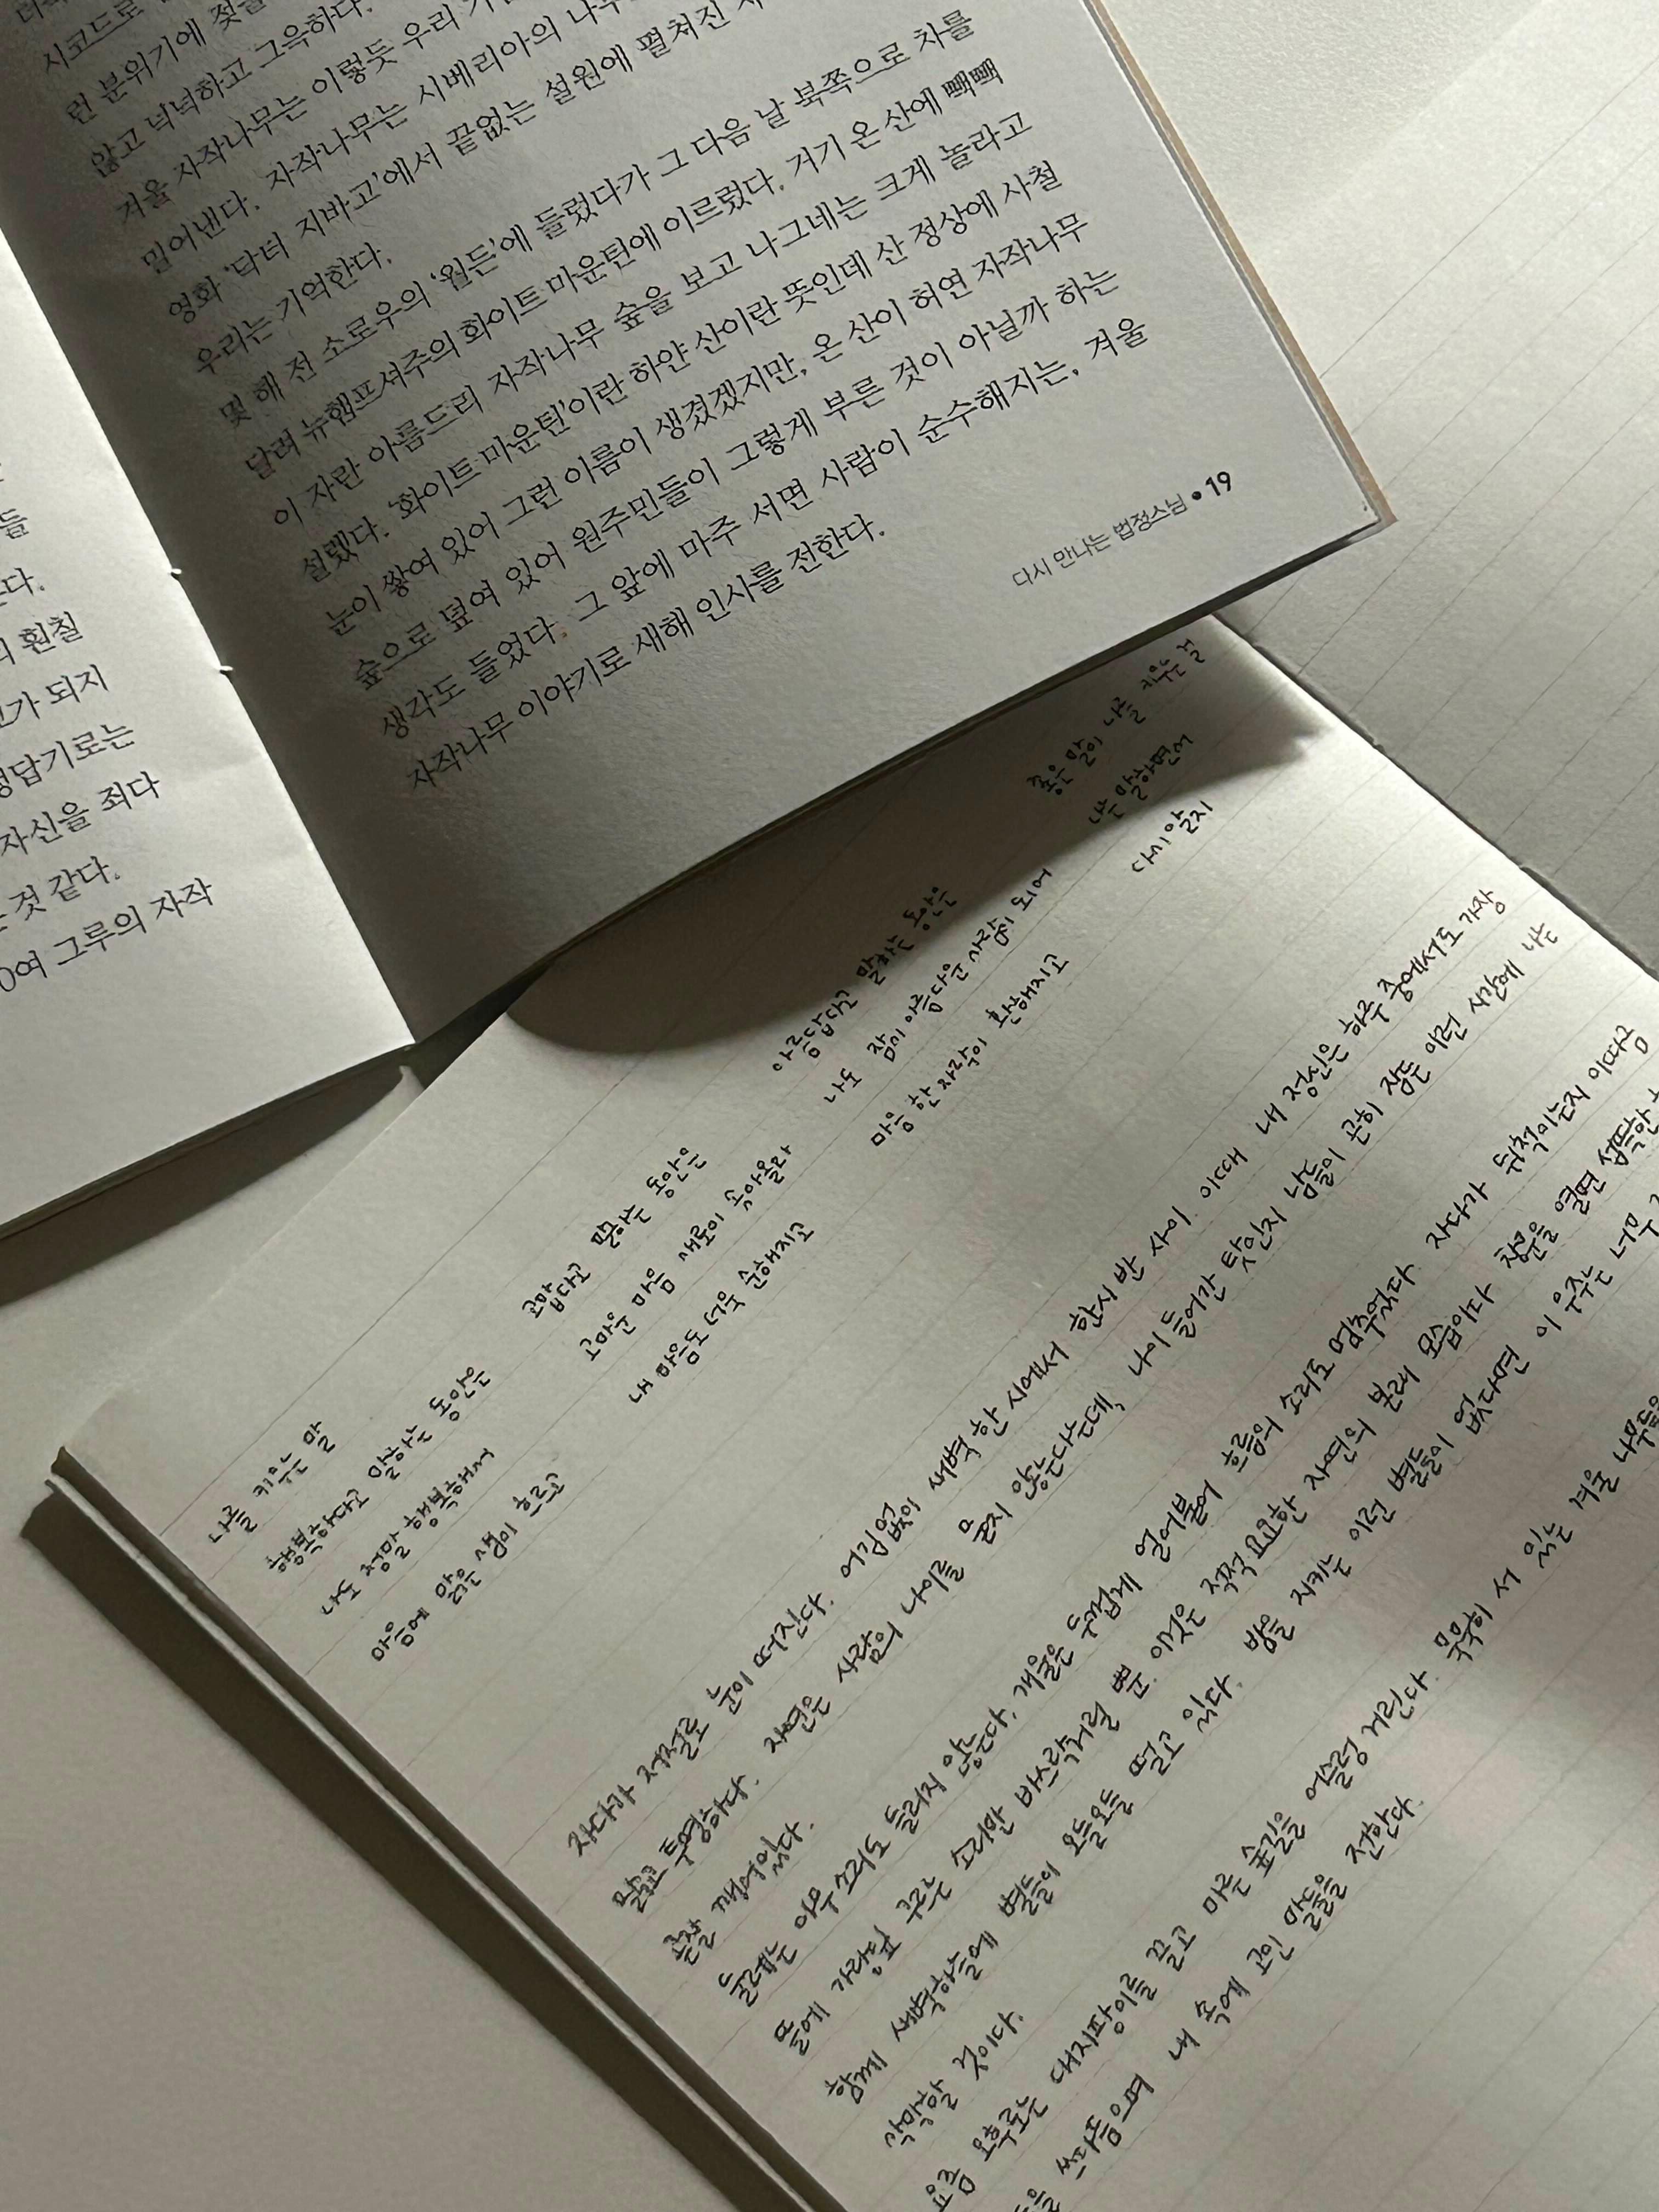 시코드로
런 분위기에 젖을
않고 넉넉하고 그윽하다.
겨울 자작나무는 이렇듯 우리
밀어낸다. 자작나무는 시베리아의
영화 '닥터 지바고'에서 끝없는 설원에 펼쳐진
우리는 기억한다.
몇 해 전 소로우의 '월든'에 들렀다가 그 다음 날 북쪽으로 차를
달려 뉴햄프셔주의 화이트 마운틴에 이르렀다. 거기 온 산에 빽빽
이 자란 아름드리 자작나무 숲을 보고 나그네는 크게 놀라고
설렜다. '화이트 마운틴'이란 하얀 산이란 뜻인데 산 정상에 사철
눈이 쌓여 있어 그런 이름이 생겼겠지만, 온 산이 허연 자작나무
숲으로 덮여 있어 원주민들이 그렇게 부른 것이 아닐까 하는
생각도 들었다. 그 앞에 마주 서면 사람이 순수해지는, 겨울
자작나무 이야기로 새해 인사를 전한다.
다시 만나는 법정스님 • 19
들
다.
훤칠
가 되지
정답기로는
자신을 죄다
것 같다.
0여 그루의 자작
나를 키우는 말
행복하다고 말하는 동안은
나도 정말 행복해서
마음에 맑은 샘이 흐르고
고맙다고 말하는 동안은
고마운 마음 새로이 솟아올라
내 마음도 더욱 순해지고
아름답다고 말하는 동안은
나도 잠시 아름다운 사람이 되어
마음 한 자락이 환해지고
좋은 말이 나를 키우는 걸
나는 말하면서
다시 알지
자다가 저절로 눈이 떠진다. 어김없이 새벽 한 시에서 한시 반 사이. 이때 내 정신은 하루 중에서도 가장
맑고 투명하다. 자연은 사람의 나이를 묻지 않는다는데, 나이 들어간 탓인지 남들이 곤히 잠든 이런 시간에 나는
곧잘 깨어있다.
둘레는 아무 소리도 들리지 않는다. 개울은 두껍게 얼어붙어 흐름의 소리도 멈추었다. 자다가 뒤척이는지 이따금
뜰에 가랑잎 구르는 소리만 바스락거릴 뿐. 이것은 적적 요요한 자연의 본래 모습이다 창문을 열면 섬뜩한
함께 새벽하늘에 별들이 오들오들 떨고 있다. 밤을 지키는 이런 별들이 없다면 이 우주는 너무
삭막할 것이다.
요즘 오후로는 대지팡이를 끌고 마른 숲길을 어슬렁 거린다. 묵묵히 서 있는 겨울 나무들을
쓰다듬으며 내 속에 고인 말들을 전한다.